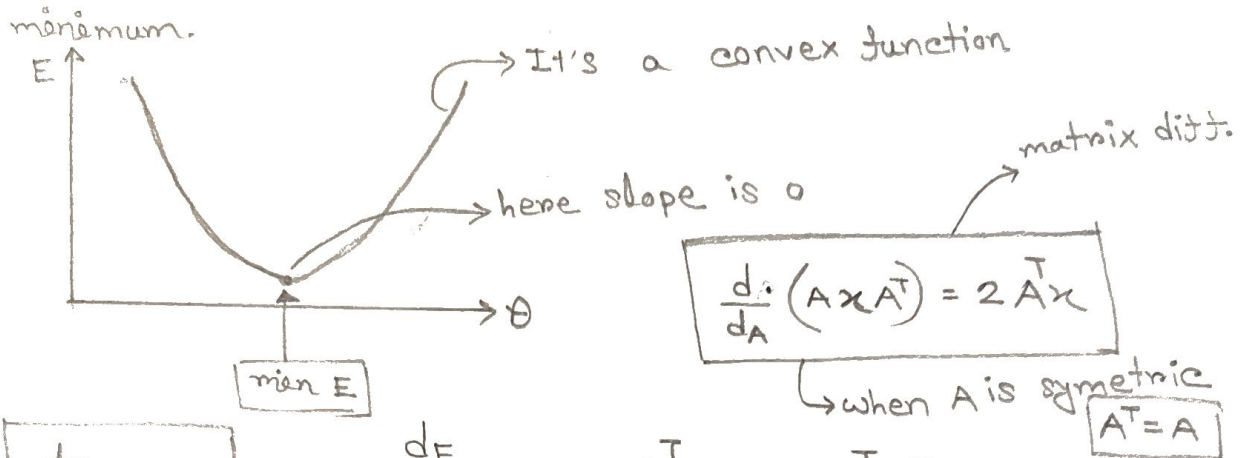 mënëmum.
E
It's a convex function
matrix diff.
here slope is 0
d/dA (AxAᵀ) = 2Aᵀx
θ
min E
when A is symetric
Aᵀ = A
dE
T
T